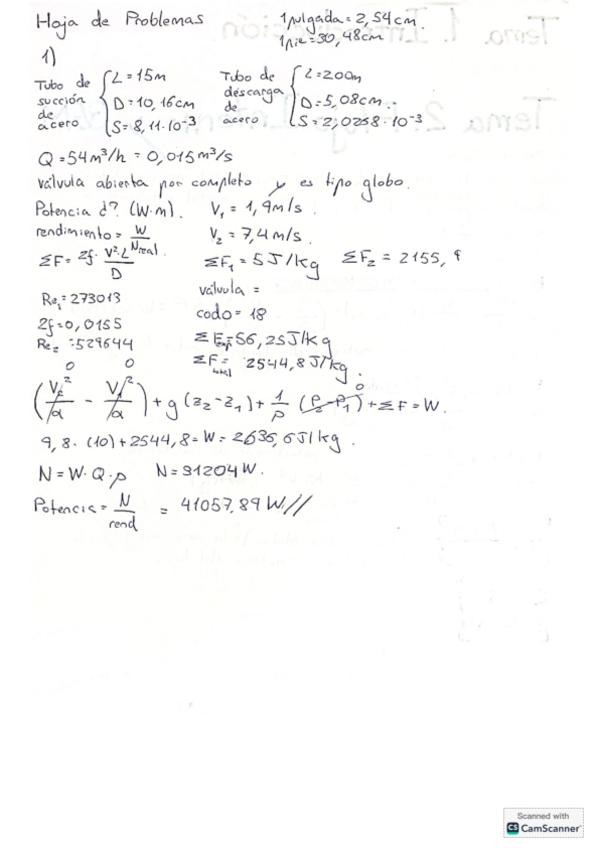 Hoja de Problemas
1 pulgada = 2,54cm.
1 pie = 30,48cm
1)
Tubo de succión de acero { L = 15m
D = 10,16cm
S = 8,11·10⁻³
Tubo de descarga de acero { L = 200m
D = 5,08cm.
S = 2,0258·10⁻³
Q = 54m³/h = 0,015m³/s
válvula abierta por completo y es tipo globo.
Potencia d? (W·m). V₁ = 1,9m/s.
rendimiento = W/Nreal V₂ = 7,4m/s.
ΣF = 2f· V²·L/D ΣF₁ = 5J/kg ΣF₂ = 2155,9
Re₁ = 273013 válvula =
2f = 0,0155 codo = 18
Re₂ = 529644 ΣF = 56,25J/kg
ΣF = 2544,8J/kg.
0 0 0
(V₂²/α - V₁²/α) + g(z₂-z₁) + 1/ρ (P₂-P₁) + ΣF = W.
9,8·(10)+2544,8 = W = 2636,6J/kg.
N = W·Q·ρ N = 31204W.
Potencia = N/rend = 41057,89W//
Scanned with
CS CamScanner